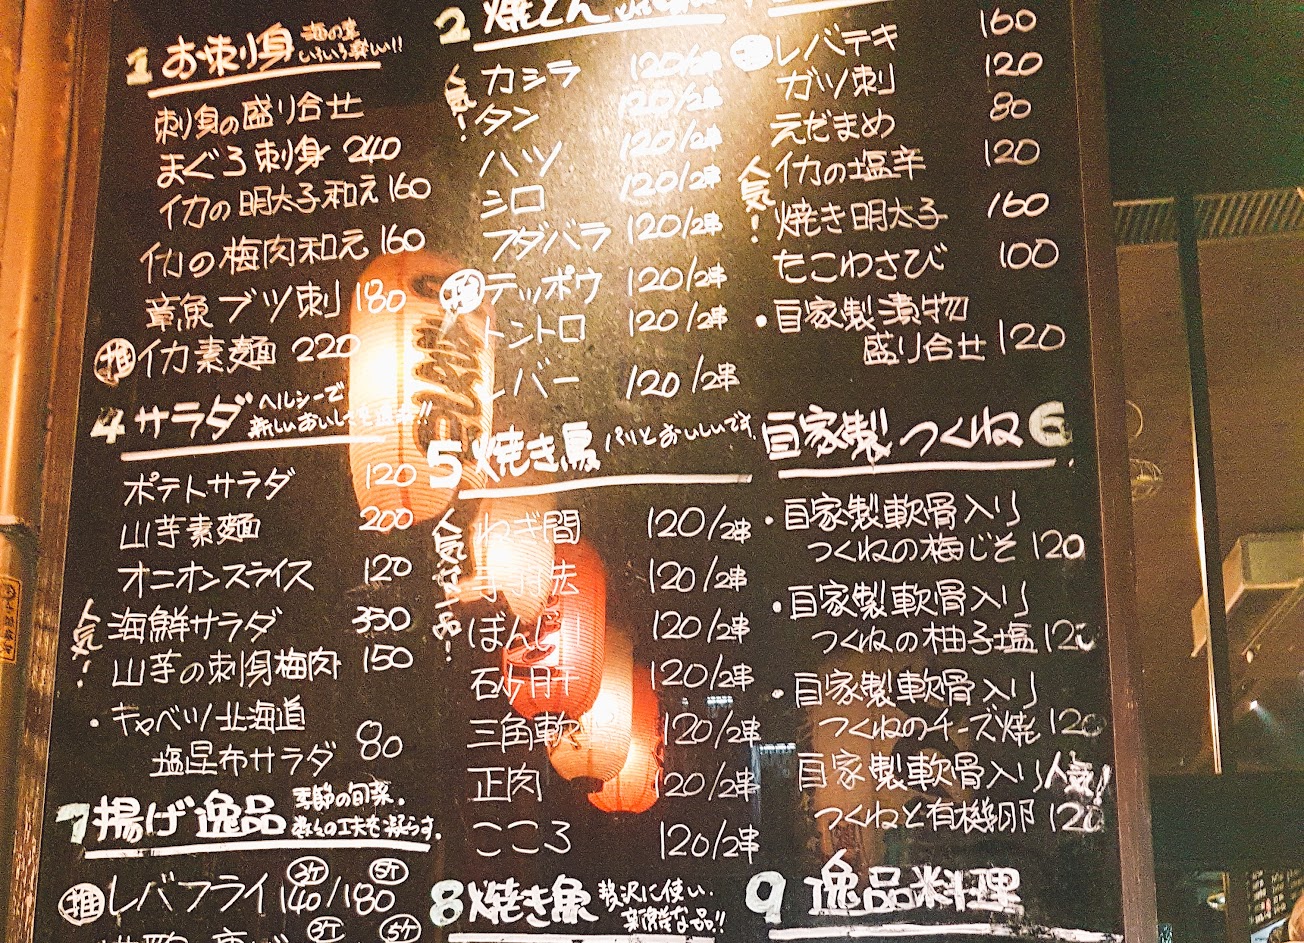 1 お刺身
刺身の盛り合せ
まぐろ刺身 240
イカの明太子和え 160
イカの梅肉和え 160
章魚ブツ刺 180
推 イカ素麺 220
4 サラダ ヘルシーで
ポテトサラダ 120
山芋素麺 200
オニオンスライス 120
人気! 海鮮サラダ 350
山芋の刺身梅肉 150
・キャベツ北海道
塩昆布サラダ 80
7 揚げ逸品 季節の旬菜。
推 レバフライ 3ケ140/5ケ180
3ケ 5ケ
2 焼とん
人気! カシラ 120/2串
タン 120/2串
ハツ 120/2串
シロ 120/2串
フダバラ 120/2串
推 テッポウ 120/2串
トントロ 120/2串
レバー 120/2串
5 焼き鳥 パリとおいしいです。
人気
ねぎ間 120/2串
120/2串
ぼんじり 120/2串
砂肝 120/2串
三角軟 120/2串
正肉 120/2串
こころ 120/2串
8 焼き魚 贅沢に使い.
新鮮な品!!
推 レバテキ 160
ガツ刺 120
えだまめ 80
人気! イカの塩辛 120
焼き明太子 160
たこわさび 100
・自家製漬物
盛り合せ 120
自家製つくね 6
・自家製軟骨入り
つくねの梅じそ 120
・自家製軟骨入り
つくねの柚子塩 120
・自家製軟骨入り
つくねのチーズ焼 120
自家製軟骨入り 人気!
つくねと有機卵 120
9 逸品料理